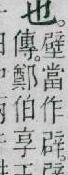 也。
壁當作辟。
傳。鄭伯享王